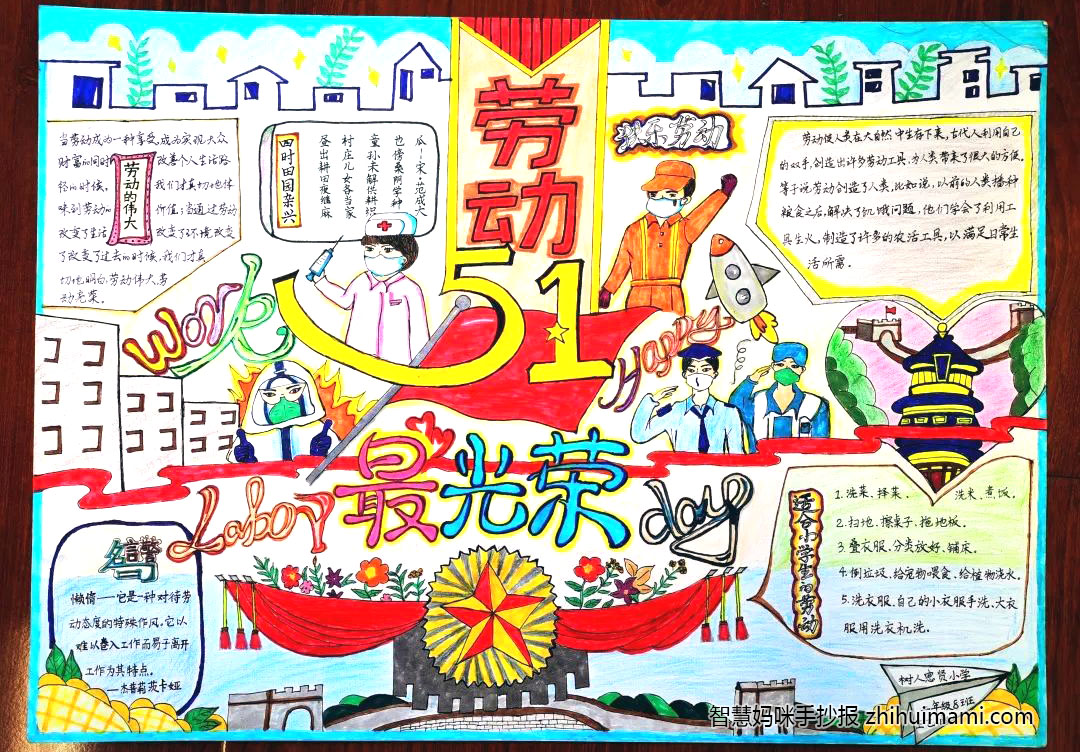 劳动
51
最光荣
Work
Happy
Labor
day
劳动的伟大
当劳动成为一种享受,成为实现大众
财富的同时 改善个人生活路
轻的时候, 我们才真切地体
味到劳动的 价值;当通过劳动
改变了生活 改变了环境改变
了改变了过去的时候,我们才真
切地明白,劳动伟大,劳
动光荣。
四时田园杂兴
宋·范成大
昼出耕田夜绩麻
村庄儿女各当家
童孙未解供耕织
也傍桑阴学种
瓜
快乐劳动
劳动使人类在大自然中生存下来,古代人利用自己
的双手,创造出许多劳动工具,为人类带来了很大的方便。
等于说劳动创造了人类,比如说,以前的人类播种
粮食之后,解决了饥饿问题,他们学会了利用工
具生火,制造了许多的农活工具,以满足日常生
活所需。
名言警
懒惰——它是一种对待劳
动态度的特殊作风。它以
难以卷入工作而易于离开
工作为其特点。
—杰普莉茨卡娅
适合小学生的劳动
1.洗菜、择菜、 洗米、煮饭。
2.扫地、擦桌子、拖地板。
3.叠衣服、分类放好、铺床。
4.倒垃圾、给宠物喂食、给植物浇水。
5.洗衣服、自己的小衣服手洗、大衣
服用洗衣机洗。
树人忠贤小学
年级8班
智慧妈咪手抄报 zhihuimami.com